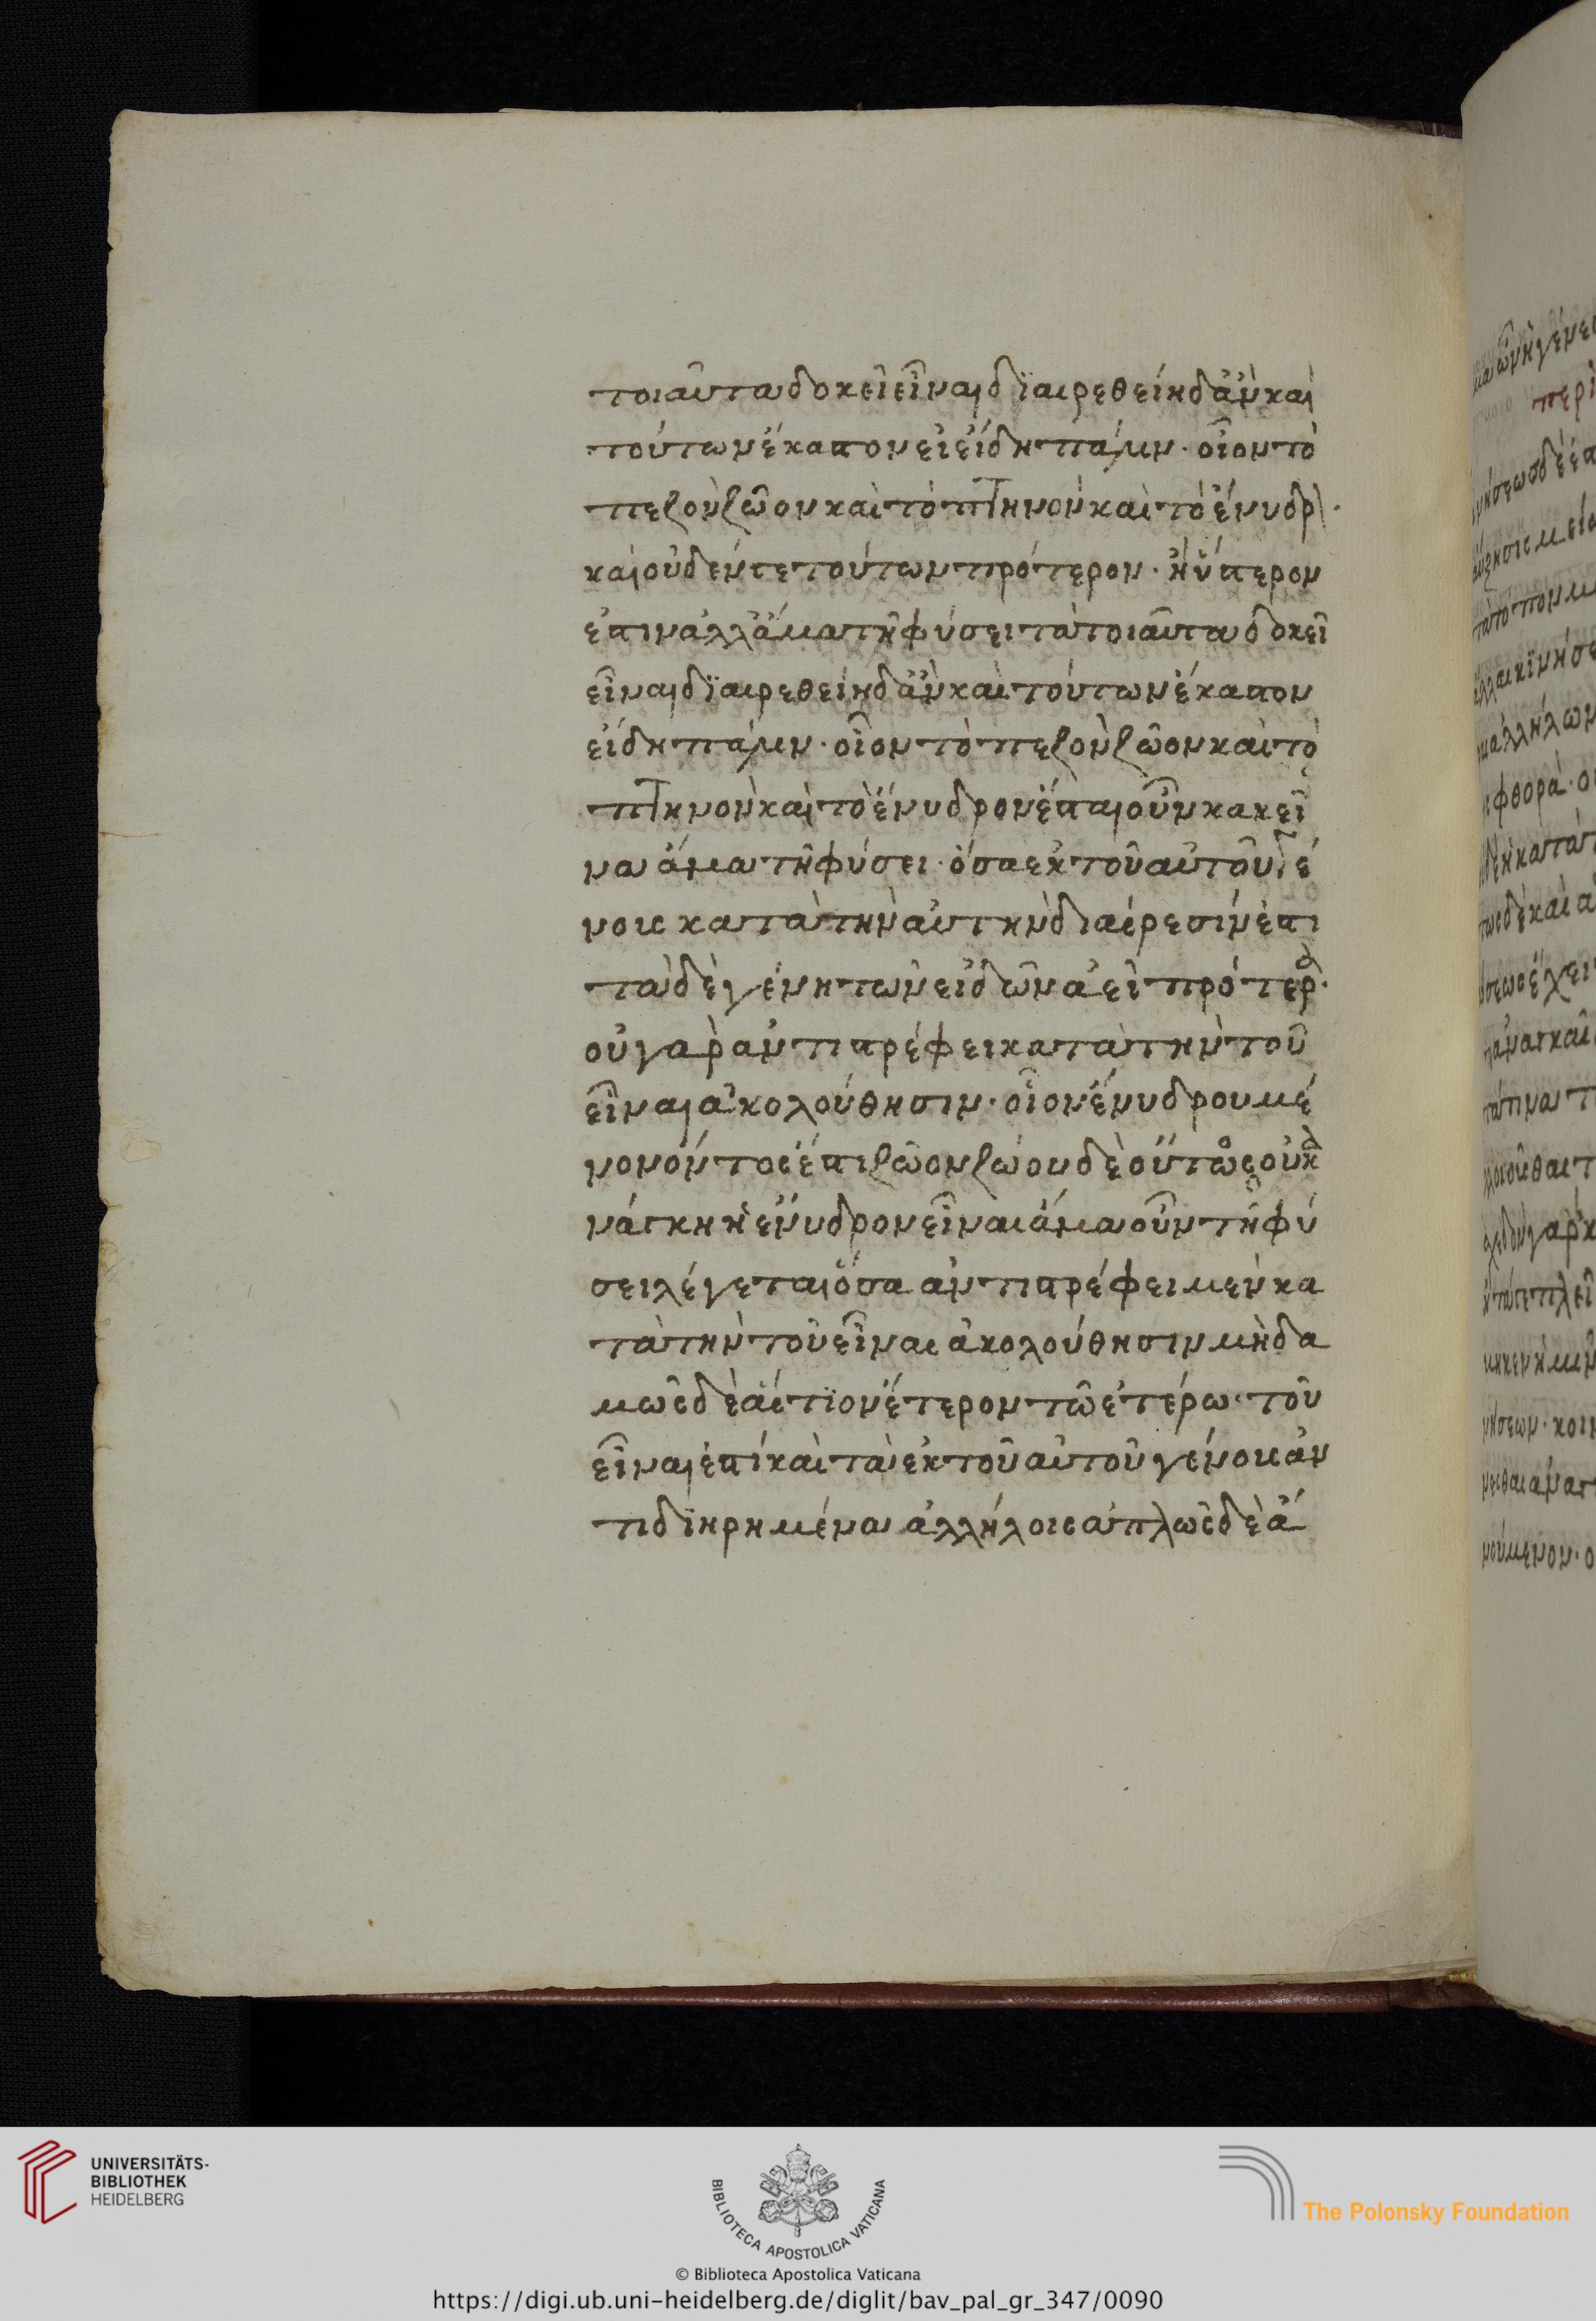 τοιαῦτα δοκεῖ εἶναι δϊαιρεθείη δἂν καὶ
τούτων ἕκαστον εἰ εἴδη πάλιν· οἷον τὸ
πεζὸν ζῶον καὶ τὸ πτηνὸν καὶ τὸ ἔνυδρ·
καὶ οὐδέν γε τούτων πρότερον· ἢ ὕστερον
ἐστιν ἀλλ ἅμα τῇ φύσει τὰ τοιαῦτα δοκεῖ
εἶναι δϊαιρεθείη δἂν καὶ τούτων ἕκαστον
εἴδη πάλιν· οἷον τὸ πεζὸν ζῶον καὶ τὸ
πτηνὸν καὶ τὸ ἔνυδρον ἔσται οὖν κακεῖ
να ἅμα τῇ φύσει· ὅσα ἐκ τοῦ αὐτοῦ γέ
νους κατὰ τὴν αὐτὴν διαίρεσίν ἐστι
τὰ δὲ γένη τῶν εἰδῶν ἀεὶ πρότερ·
οὐ γὰρ ἀντιστρέφει κατὰ τὴν τοῦ
εἶναι ἀκολούθησιν· οἷον ἐνύδρου μὲ
νον όντος ἔστι ζῶον ζώου δὲ ὄντος οὐκ ἀ
νάγκη ἢ ἔνυδρον εἶναι ἅμα οὖν τῇ φύ
σει λέγεται ὅσα ἀντιστρέφει μὲν κα
τὰ τὴν τοῦ εἶναι ἀκολούθησιν μὴδα
μῶς δὲ αἴτϊον ἕτερον τῶ ἑτέρω· τοῦ
εἶναι ἐστί καὶ τὰ ἐκ τοῦ αὐτοῦ γένους ἀν
τιδϊηρημένα ἀλλήλοις ἁπλῶς δὲ ἅ
UNIVERSITÄTS-
BIBLIOTHEK
HEIDELBERG
BIBLIOTECA APOSTOLICA VATICANA
The Polonsky Foundation
© Biblioteca Apostolica Vaticana
https://digi.ub.uni-heidelberg.de/diglit/bav_pal_gr_347/0090